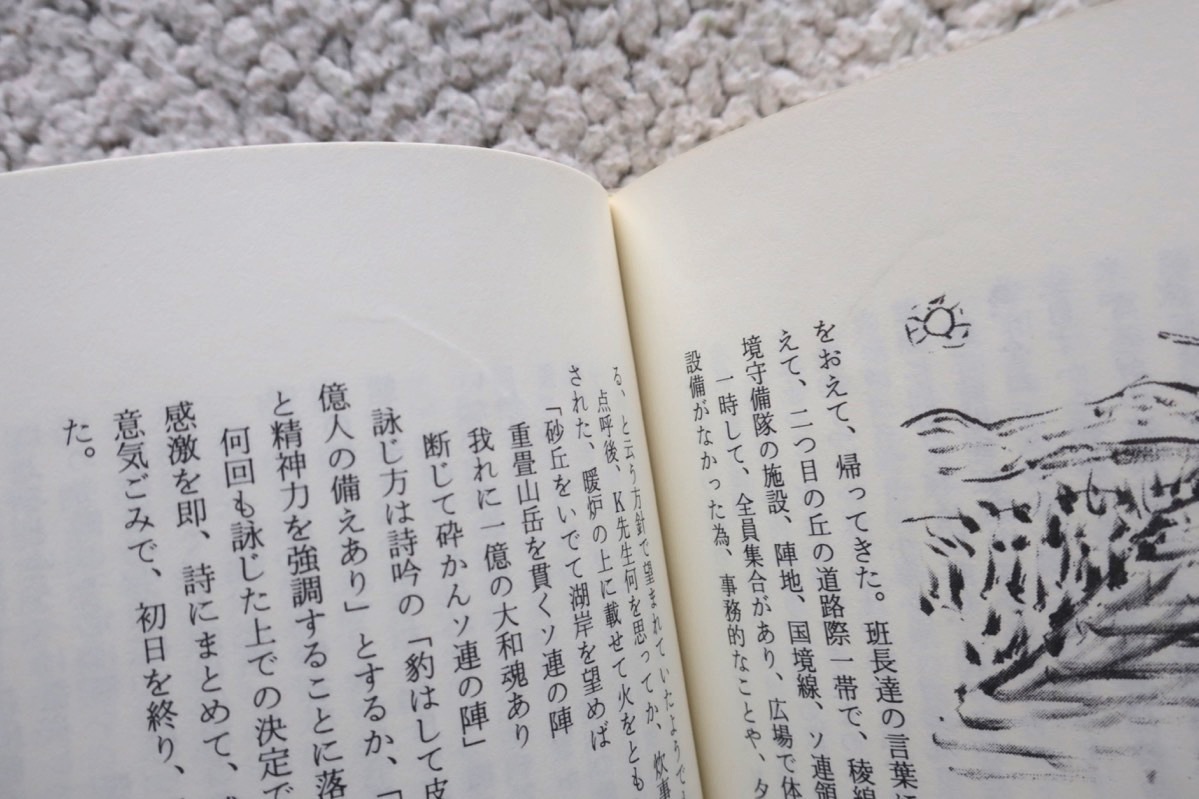 をおえて、帰ってきた。班長達の言葉
えて、二つ目の丘の道路際一帯で、稜線
境守備隊の施設、陣地、国境線、ソ連領
一時して、全員集合があり、広場で体
設備がなかった為、事務的なことや、タ
る、と云う方針で望まれていたようで
点呼後、K先生何を思ってか、炊事
された、暖炉の上に載せて火をとも
「砂丘をいでて湖岸を望めば
重畳山岳を貫くソ連の陣
我れに一億の大和魂あり
断じて砕かんソ連の陣」
詠じ方は詩吟の「豹はして皮
億人の備えあり」とするか、「
と精神力を強調することに落
何回も詠じた上での決定で
感激を即、詩にまとめて、
意気ごみで、初日を終り、
た。